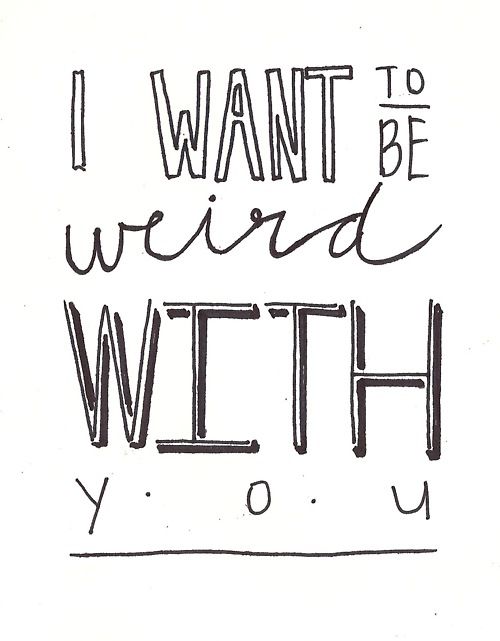 I WANT TO BE
weird
WITH
y. o. u